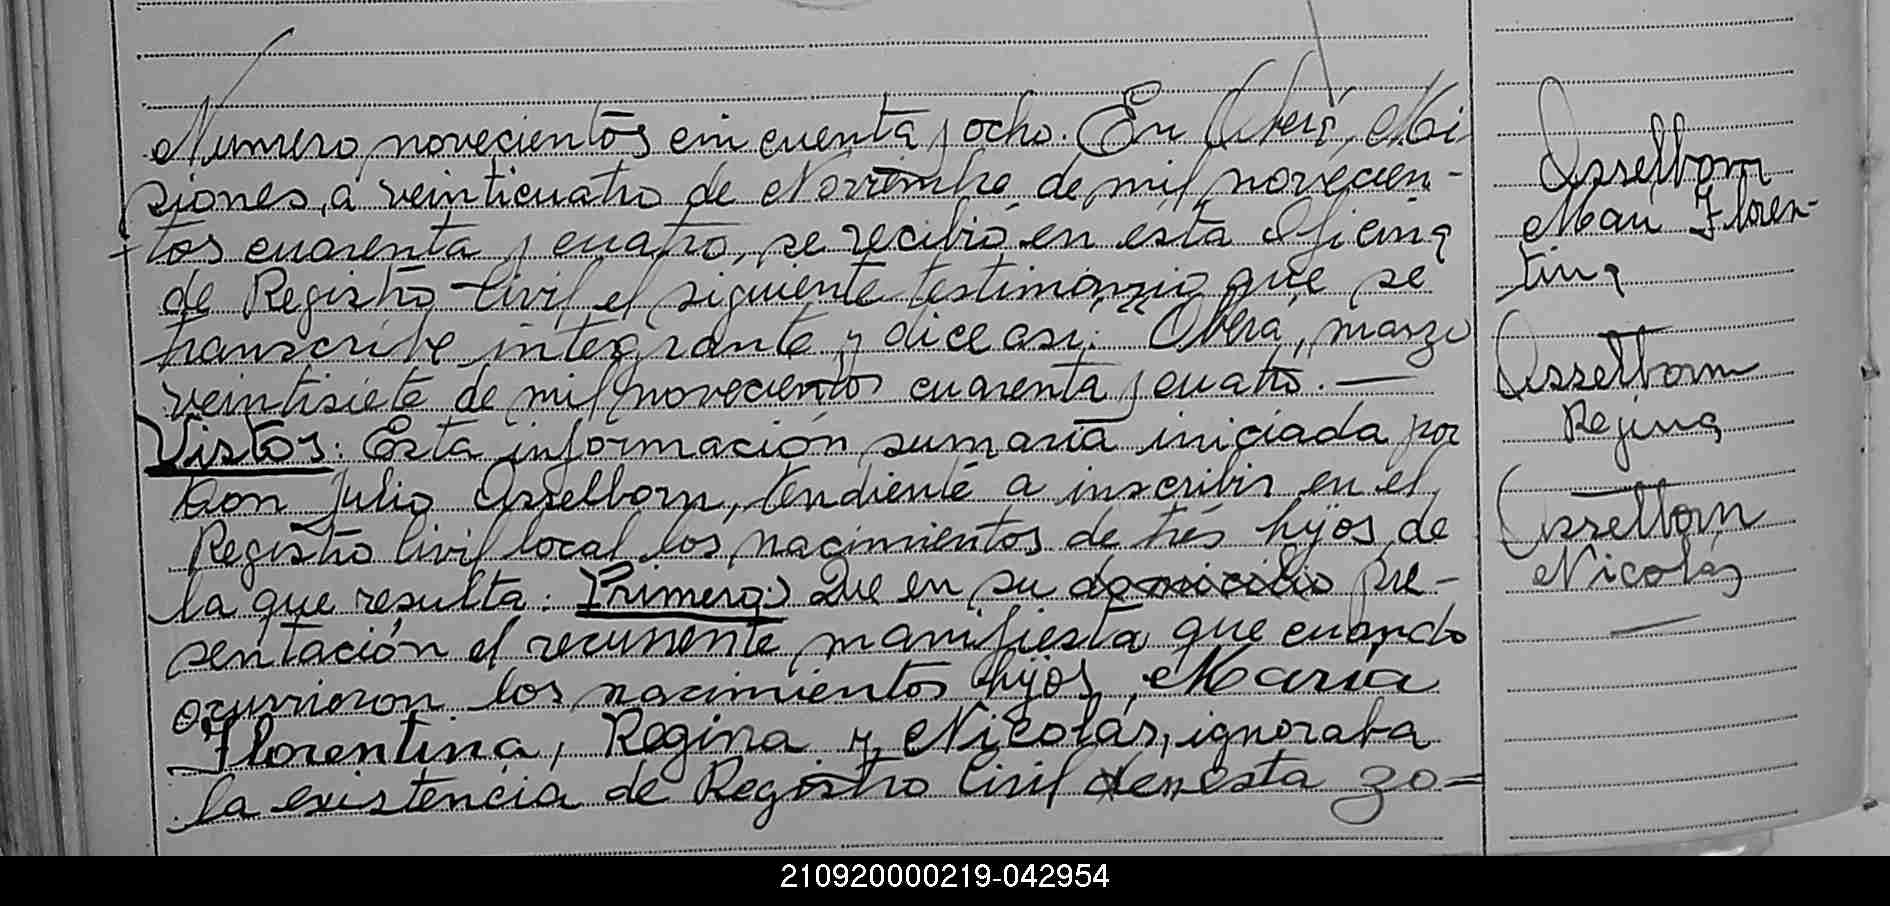 Numero novecientos cincuenta y ocho. En Oberá, Mi
siones, a veinticuatro de Noviembre de mil novecien-
tos cuarenta y cuatro, se recibió en esta Oficina
de Registro Civil el siguiente testimonio que se
transcribe integrante y dice asi: "Oberá, marzo
veintisiete de mil novecientos cuarenta y cuatro. —
Vistos: Esta información sumaria iniciada por
Don Julio Asselborn, tendiente a inscribir en el
Registro Civil local los nacimientos de tres hijos, de
la que resulta: Primero: Que en su domicilio pre-
sentación el recurrente manifiesta que cuando
ocurrieron los nacimientos hijos, María
Florentina, Regina y Nicolás, ignoraba
la existencia de Registro Civil en esta zo=
Asselborn
Mari Floren-
tina
Asselborn
Regina
Asselborn
Nicolás
210920000219-042954